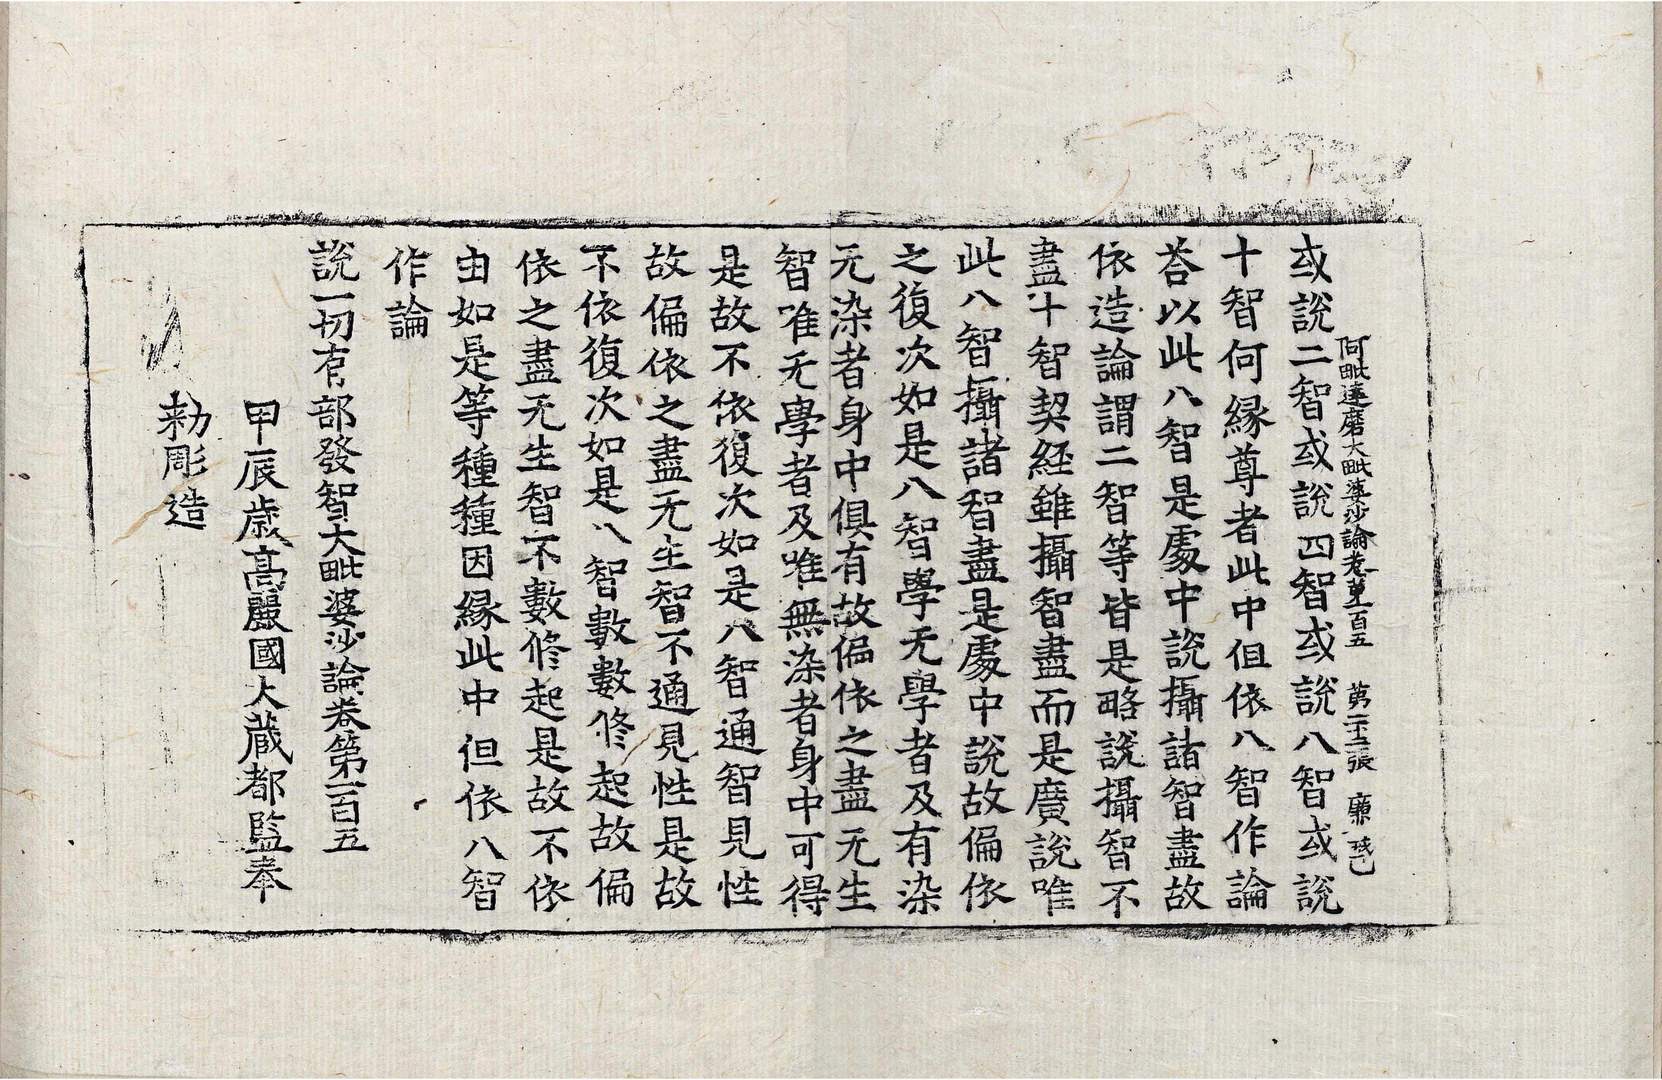 阿毗達磨大毗婆沙論卷第一百五　第二十五張　廉
或說二智或說四智或說八智或說
十智何緣尊者此中但依八智作論
荅以此八智是處中說攝諸智盡故
依造論謂二智等皆是略說攝智不
盡十智契經雖攝智盡而是廣說唯
此八智攝諸智盡是處中說故偏依
之復次如是八智學无學者及有染
无染者身中俱有故偏依之盡无生
智唯无學者及唯無染者身中可得
是故不依復次如是八智通智見性
故偏依之盡无生智不通見性是故
不依復次如是八智數數修起故偏
依之盡无生智不數修起是故不依
由如是等種種因緣此中但依八智
作論
說一切有部發智大毗婆沙論卷第一百五
甲辰歲高麗國大藏都監奉
勑彫造